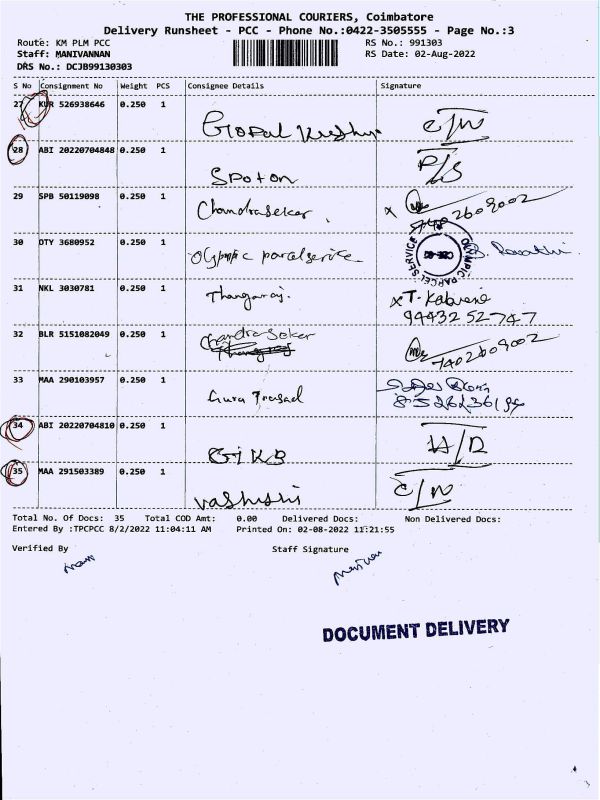 THE PROFESSIONAL COURIERS, Coimbatore
Delivery Runsheet - PCC - Phone No.:0422-3505555 - Page No.:3
Route: KM PLM PCC RS No.: 991303
Staff: MANIVANNAN RS Date: 02-Aug-2022
DRS No.: DCJB99130303
S No Consignment No Weight PCS Consignee Details Signature
27 KUR 526938646 0.250 1
Gopal C/N
28 ABI 20220704848 0.250 1
Spoton P/S
29 SPB 50119098 0.250 1
Chandrasekar x 7402609002
30 OTY 3680952 0.250 1
Olympic parcel service OLYMPIC PARCEL SERVICE B. Revathi
31 NKL 3030781 0.250 1
Thangaraj. x T. 94432 52747
32 BLR 5151082049 0.250 1
Chandrasekar 7402609002
33 MAA 290103957 0.250 1
Guru Prasad
34 ABI 20220704810 0.250 1
GIKB
35 MAA 291503389 0.250 1
Vashishi C/N
Total No. Of Docs: 35 Total COD Amt: 0.00 Delivered Docs: Non Delivered Docs:
Entered By :TPCPCC 8/2/2022 11:04:11 AM Printed On: 02-08-2022 11:21:55
Verified By Staff Signature
DOCUMENT DELIVERY